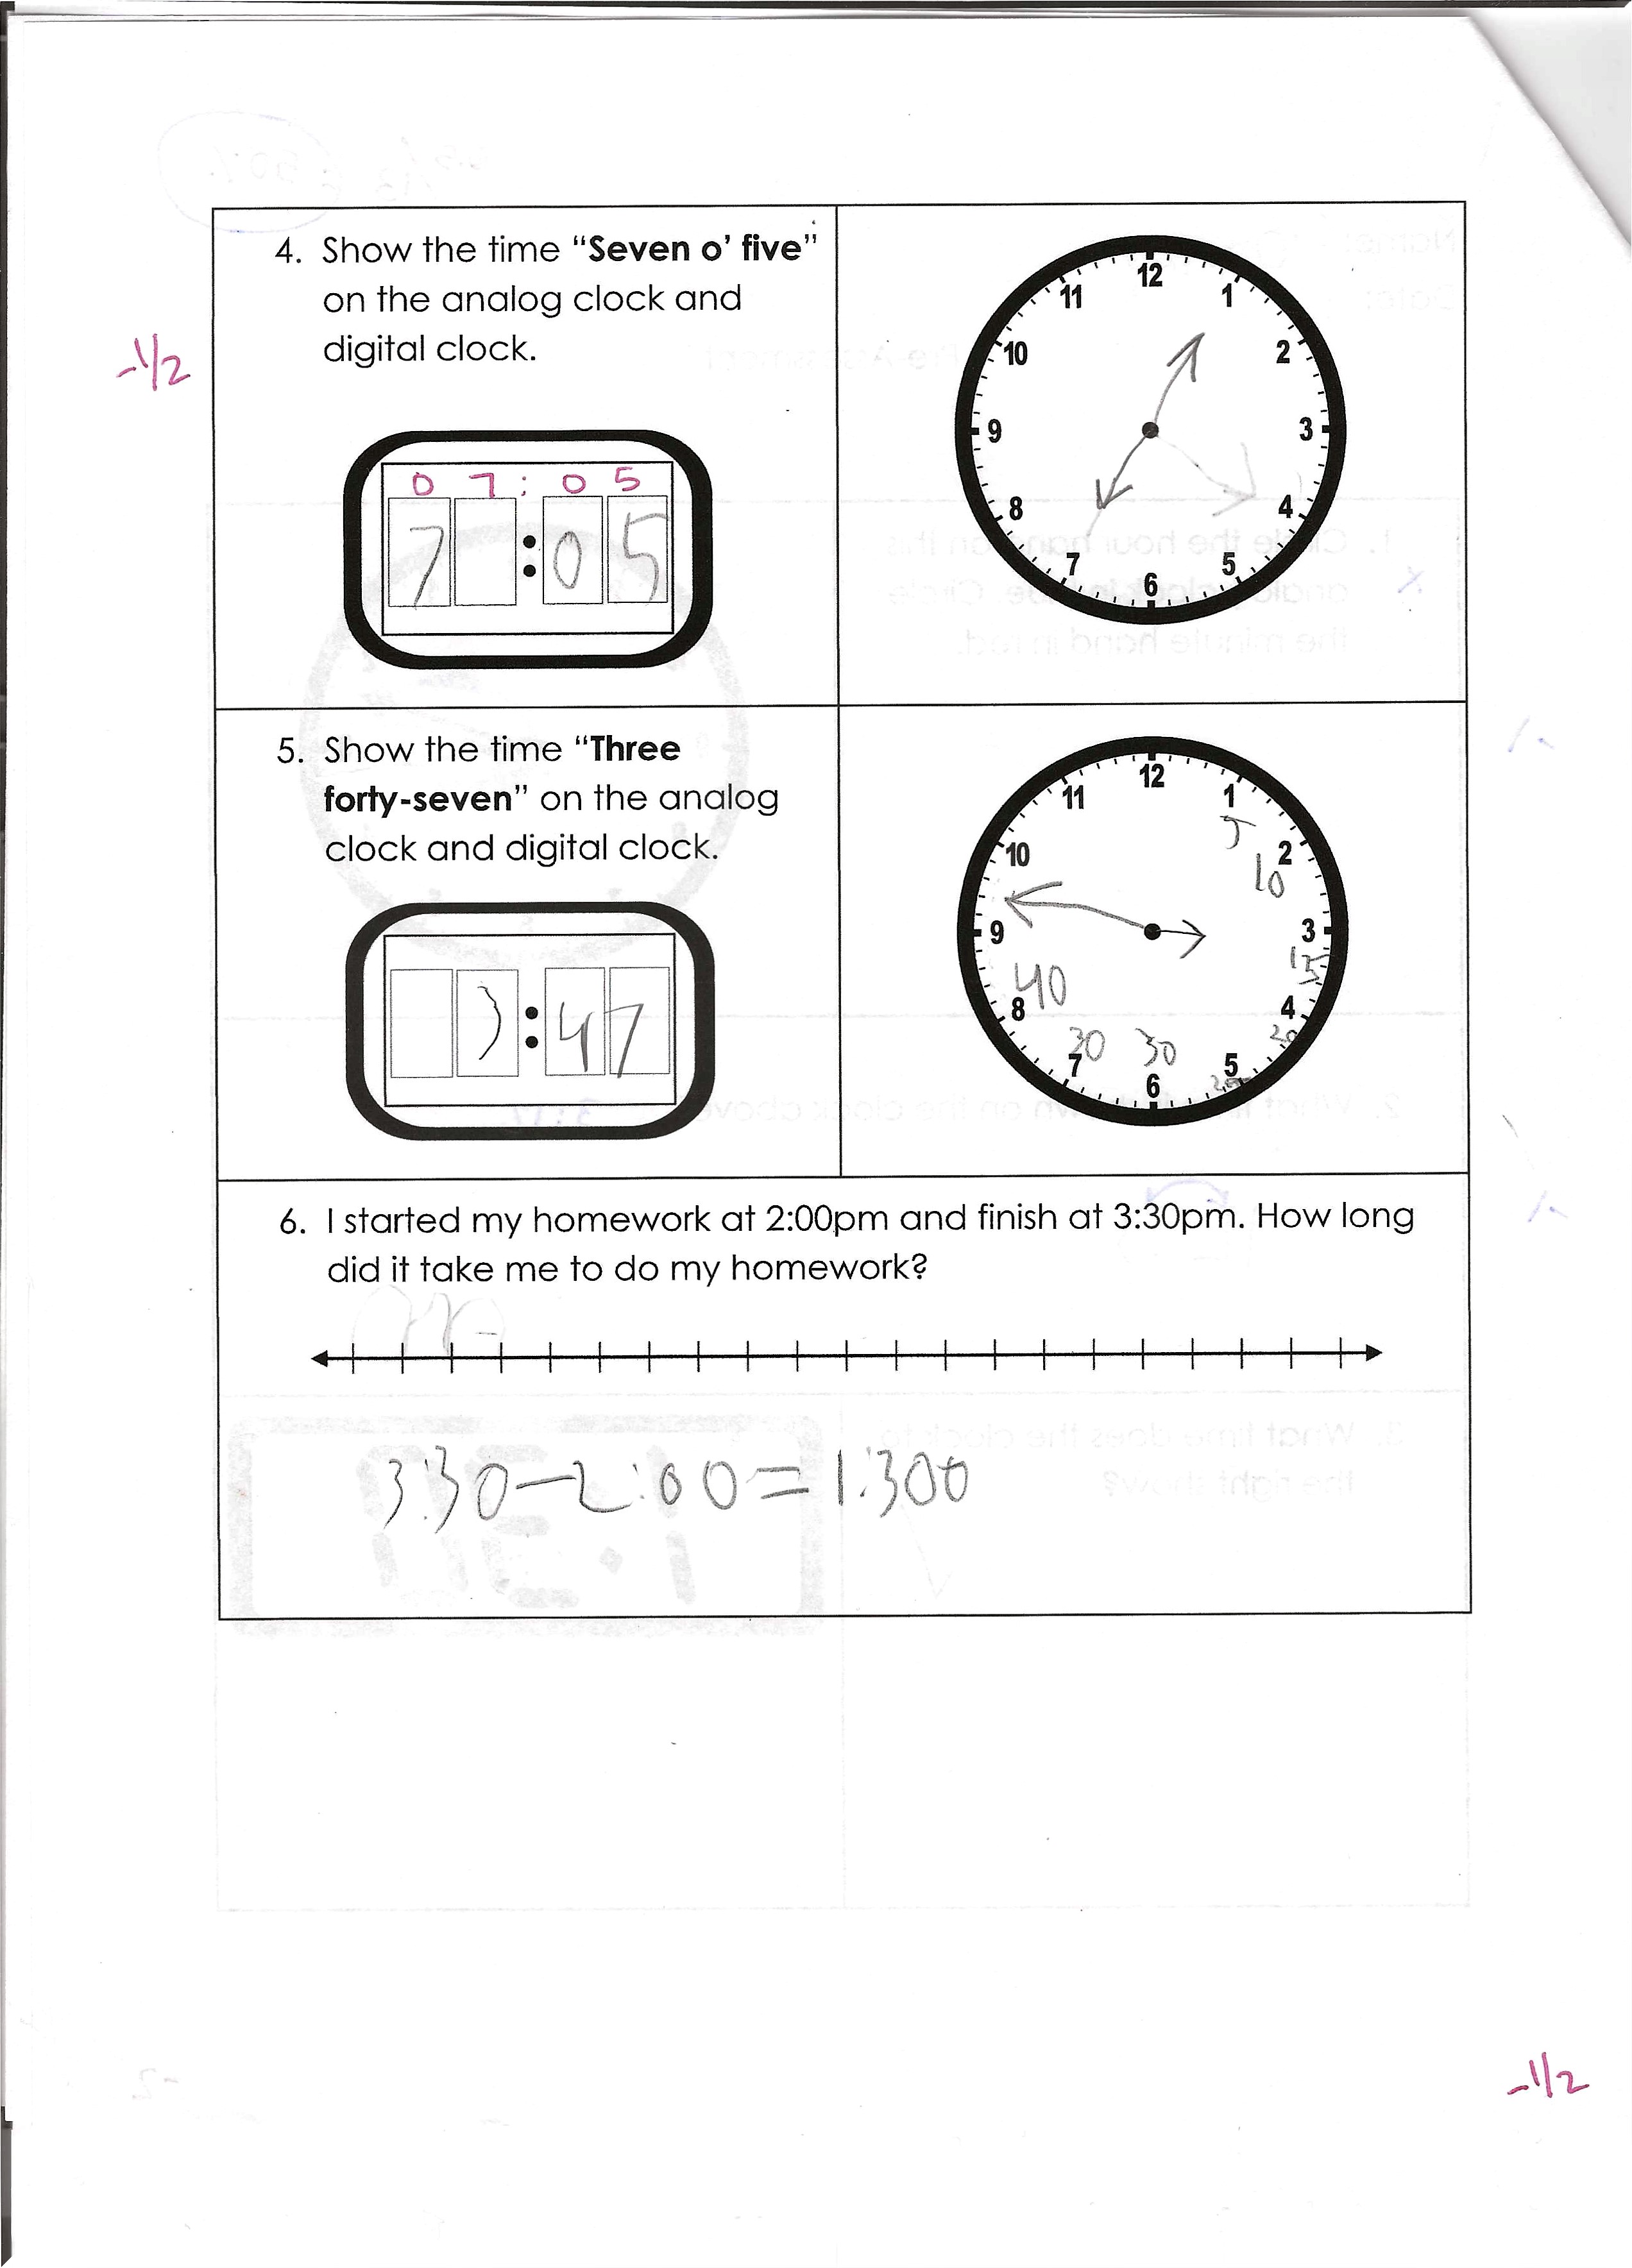 4. Show the time “Seven o’ five”
on the analog clock and
digital clock.
-1/2
0 7 : 0 5
7 : 0 5
12
11 1
10 2
9 3
8 4
7 5
6
5. Show the time “Three
forty-seven” on the analog
clock and digital clock.
3 : 4 7
12
11 1
5
10 2
10
9 3
15
40
8 4
20
30 30
7 5
6
6. I started my homework at 2:00pm and finish at 3:30pm. How long
did it take me to do my homework?
3:30-2:00=1:300
-1/2